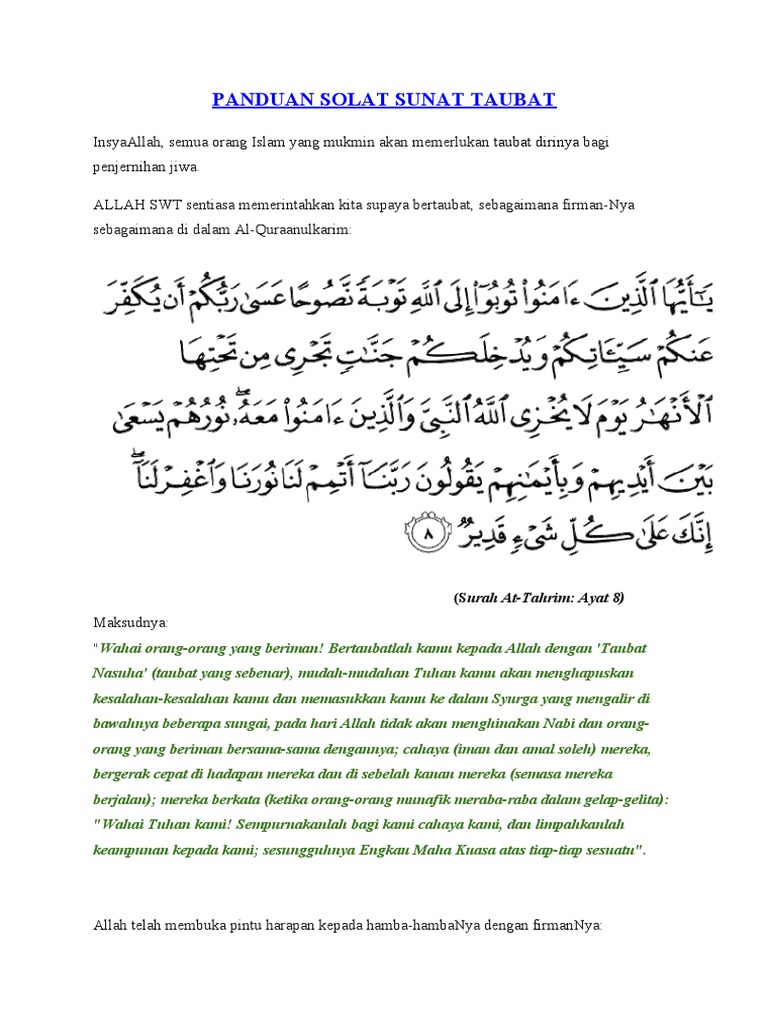 PANDUAN SOLAT SUNAT TAUBAT
InsyaAllah, semua orang Islam yang mukmin akan memerlukan taubat dirinya bagi
penjernihan jiwa.
ALLAH SWT sentiasa memerintahkan kita supaya bertaubat, sebagaimana firman-Nya
sebagaimana di dalam Al-Quraanulkarim:
يَـٰٓأَيُّهَا ٱلَّذِينَ ءَامَنُوا۟ تُوبُوٓا۟ إِلَى ٱللَّهِ تَوْبَةً نَّصُوحًا عَسَىٰ رَبُّكُمْ أَن يُكَفِّرَ
عَنكُمْ سَيِّـَٔاتِكُمْ وَيُدْخِلَكُمْ جَنَّـٰتٍ تَجْرِى مِن تَحْتِهَا
ٱلْأَنْهَـٰرُ يَوْمَ لَا يُخْزِى ٱللَّهُ ٱلنَّبِىَّ وَٱلَّذِينَ ءَامَنُوا۟ مَعَهُۥ ۖ نُورُهُمْ يَسْعَىٰ
بَيْنَ أَيْدِيهِمْ وَبِأَيْمَـٰنِهِمْ يَقُولُونَ رَبَّنَآ أَتْمِمْ لَنَا نُورَنَا وَٱغْفِرْ لَنَآ ۖ
إِنَّكَ عَلَىٰ كُلِّ شَىْءٍ قَدِيرٌ ٨
(Surah At-Tahrim: Ayat 8)
Maksudnya:
"Wahai orang-orang yang beriman! Bertaubatlah kamu kepada Allah dengan 'Taubat
Nasuha' (taubat yang sebenar), mudah-mudahan Tuhan kamu akan menghapuskan
kesalahan-kesalahan kamu dan memasukkan kamu ke dalam Syurga yang mengalir di
bawahnya beberapa sungai, pada hari Allah tidak akan menghinakan Nabi dan orang-
orang yang beriman bersama-sama dengannya; cahaya (iman dan amal soleh) mereka,
bergerak cepat di hadapan mereka dan di sebelah kanan mereka (semasa mereka
berjalan); mereka berkata (ketika orang-orang munafik meraba-raba dalam gelap-gelita):
"Wahai Tuhan kami! Sempurnakanlah bagi kami cahaya kami, dan limpahkanlah
keampunan kepada kami; sesungguhnya Engkau Maha Kuasa atas tiap-tiap sesuatu".
Allah telah membuka pintu harapan kepada hamba-hambaNya dengan firmanNya: